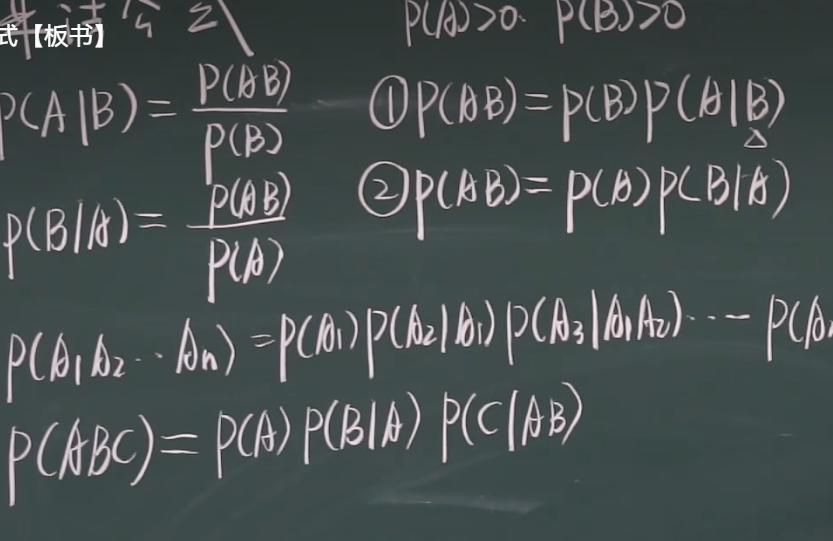 式【板书】
P(A)>0. P(B)>0
P(A|B) = P(AB)/P(B) ① P(AB) = P(B)P(A|B)
P(B|A) = P(AB)/P(A) ② P(AB) = P(A)P(B|A)
P(A₁A₂‥Aₙ) = P(A₁)P(A₂|A₁)P(A₃|A₁A₂)⋯ P(A
P(ABC) = P(A)P(B|A)P(C|AB)